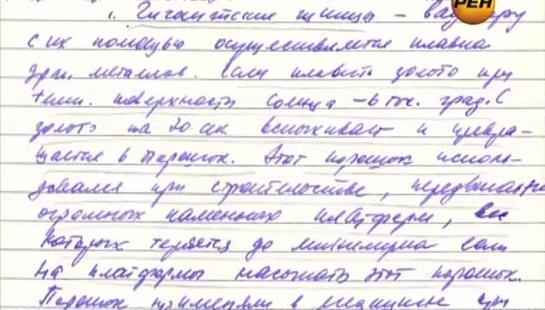 РЕН
1. Гигантские щипцы – ваджру
С их помощью осуществляется плавка
драг. металлов. Если плавить золото при
темп. поверхности Солнца – 6 тыс. град. С
золото на 70 сек. вспыхивает и превра-
щается в порошок. Этот порошок исполь-
зовался при строительстве, передвигая
огромных каменных платформ, вес
которых теряется до минимума если
на платформы насыпать этот порошок.
Порошок применяли в медицине при